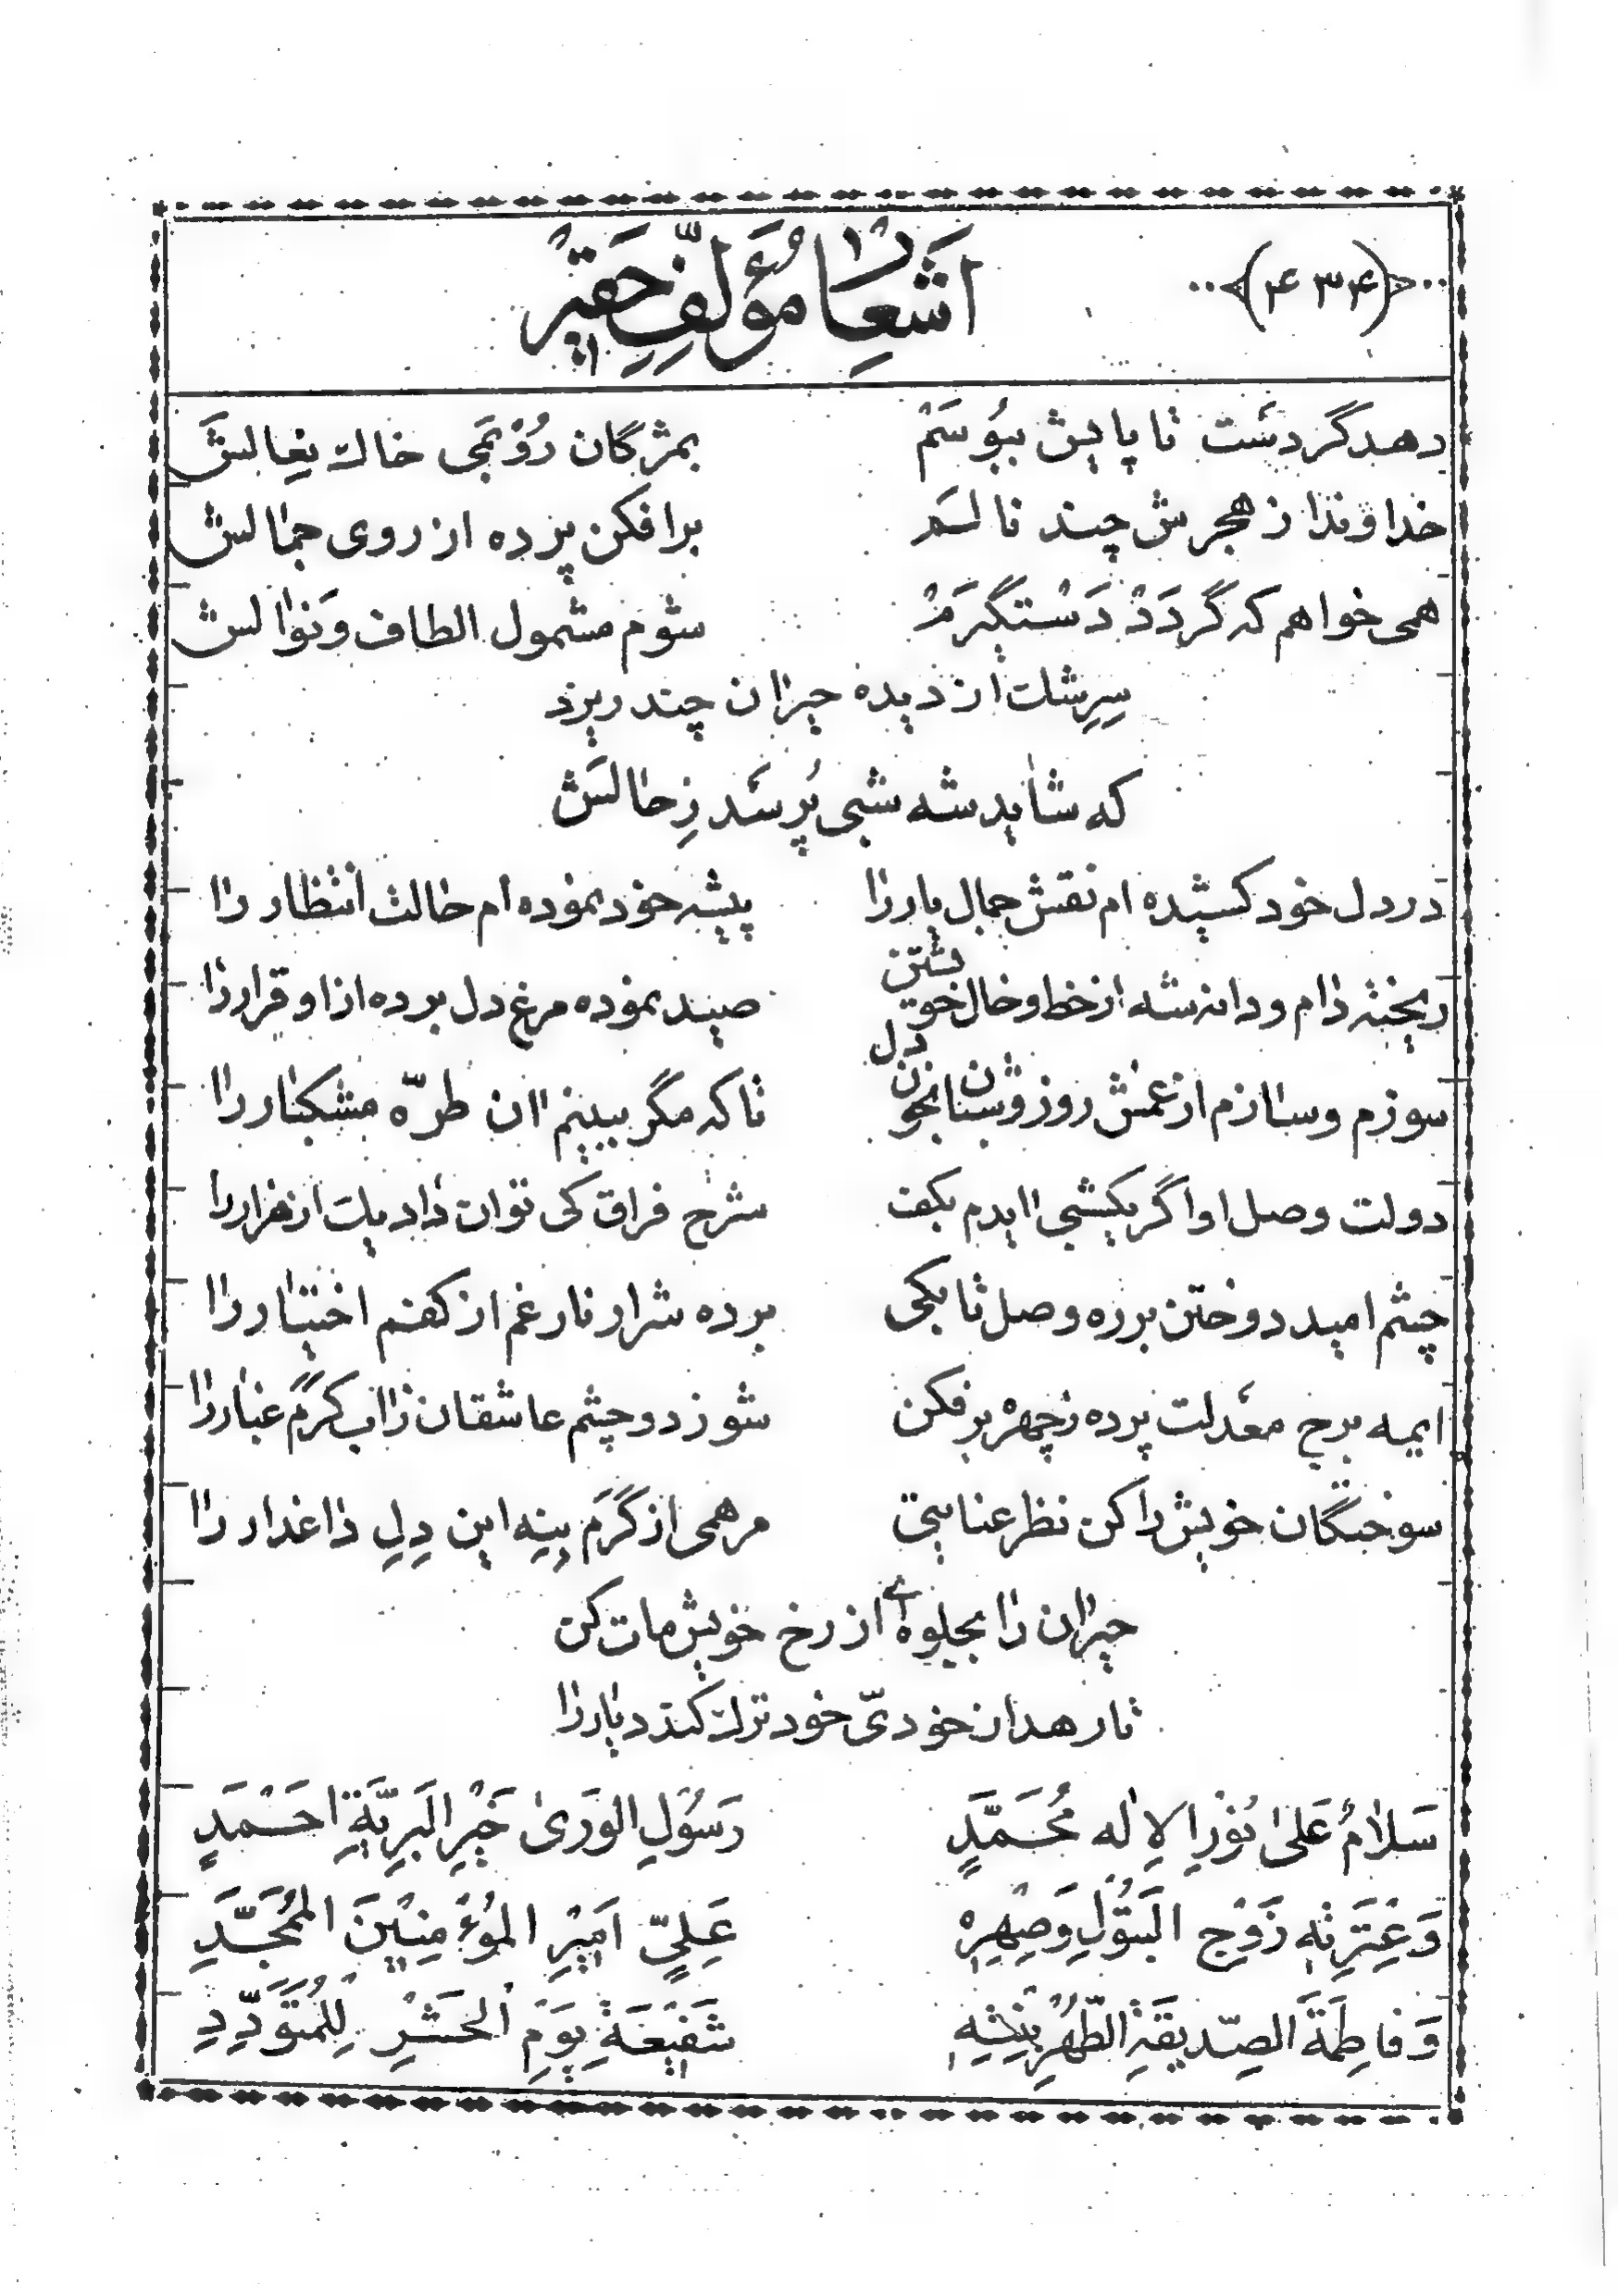 ﴿۴۳۴﴾
اَشعارِ مُؤَلِّفِ حَقیر
دهد گر دَست تا پایش ببُوسَمْ بمژگان رُوْبَمی خاك نِعالَش
خداوندا ز هجرش چند نالم برافکن پرده از روی جمالش
همی خواهم که گَردَدْ دَسْتگیرَمْ شوم مشمول الطاف و نَوالش
سِرِشك از دیده حیران چند ریزد
که شاید شه شبی پُرسَد زِ حالَش
در دل خود کشیده ام نقش جمال یار را پیشه خود نموده ام حالت انتظار را
ریخته دام و دانه شه از خط و خال خویشتن صید نموده مرغ دل برده از او قرار را
سوزم و سازم از غمش روز و شبان بخون دل تا که مگر ببینم ان طرّه مشکبار را
دولت وصل او اگر یکشبی ایدم بکف شرح فراق کی توان داد یك از هزار را
چشم امید دوختن بر ره وصل تا بکی برده شرار نار غم از کفم اختیار را
ایمه برج معدلت پرده ز چهره برفکن شو ز دو چشم عاشقان زاب کَرَم غبار را
سوختگان خویش را کن نظر عنایتی مرهمی از کَرَم بِنِه این دِلِ داغدار را
حیران را بجلوهٔ از رخ خویش مات کن
تا رهد از خودیّ خود ترك کند دیار را
سَلامٌ عَلیٰ نُوْرِ الاِلٰه مُحَمَّدٍ رَسُوْلِ الوَریٰ خَیْرِ البَرِیَّةِ احَْمَدٍ
وَ عِتْرَتِهِ زَوْجِ البَتُوْلِ وَصِهْرِهِ عَلِیٍّ اَمِیْرِ المُؤْمِنِیْنَ المُمَجَّدِ
وَ فاطِمَةَ الصِّدیقَةِ الطُّهْرِ بِنْتِهِ شَفیْعَةِ یَوْمِ الحَشْرِ لِلْمُتَوَدِّدِ